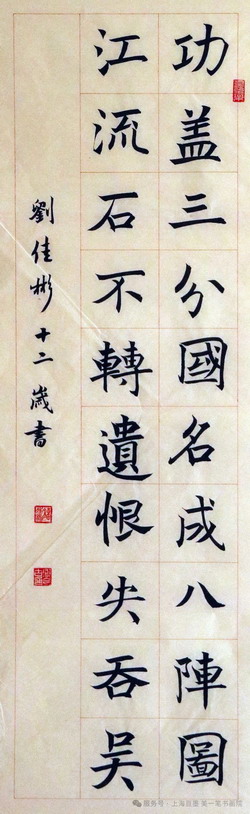 功盖三分國名成八陣圖
江流石不轉遺恨失吞吴
劉佳彬十二歲書
服务号·上海百墨 第一笔书画馆